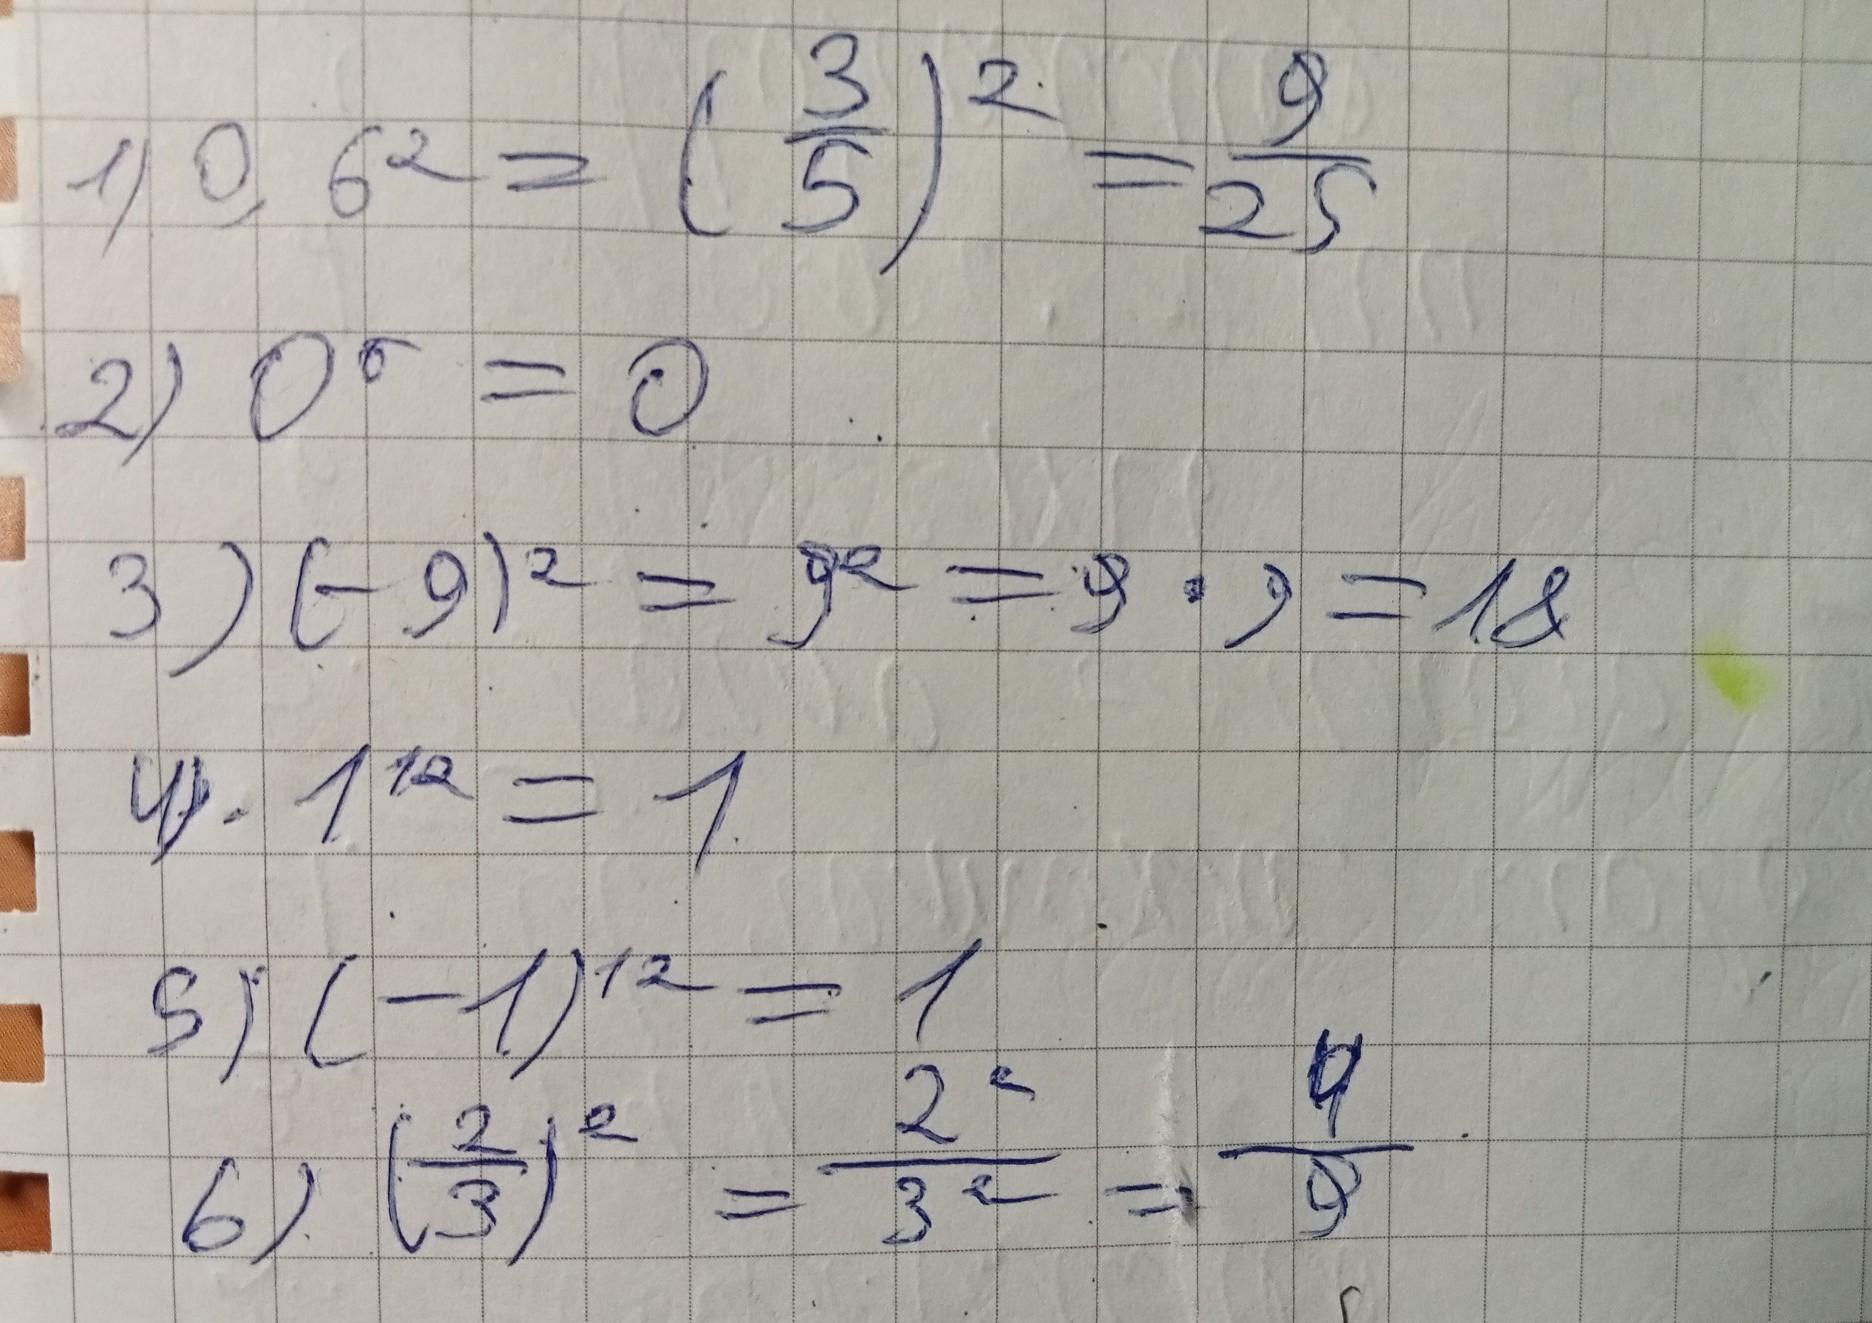 1) 0,6² = (3/5)² = 9/25
2) 0⁶ = 0
3) (-9)² = 9² = 9 · 9 = 18
4). 1¹² = 1
5) (-1)¹² = 1
6) (2/3)² = 2²/3² = 4/9